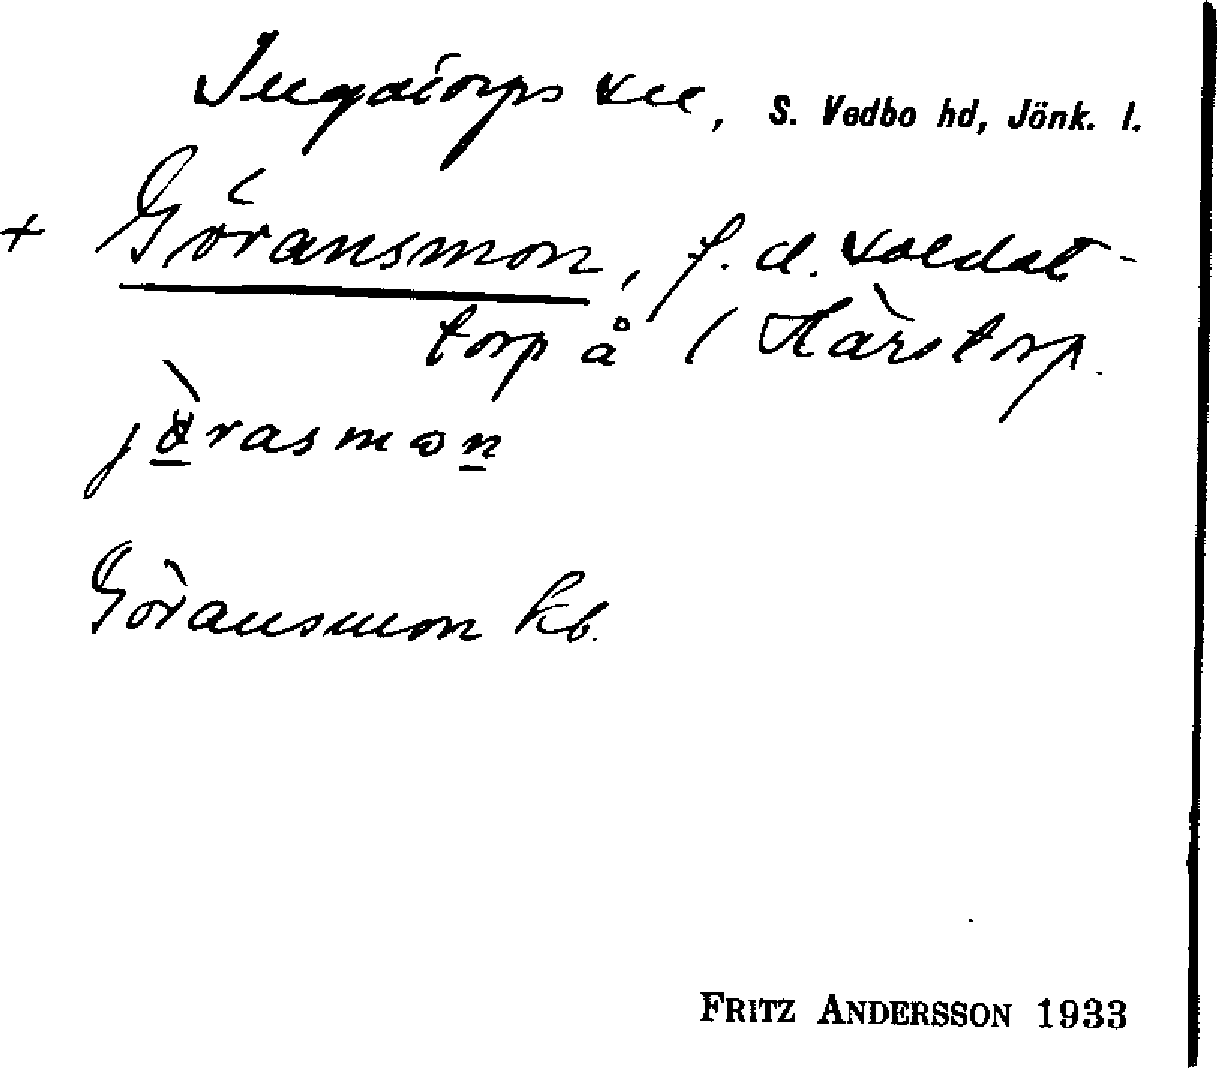 Ingatorps sn, S. Vedbo hd, Jönk. l.
+ Göransmon, f.d. soldat-
torp å / Härstorp.
Göransmon kb.
FRITZ ANDERSSON 1933